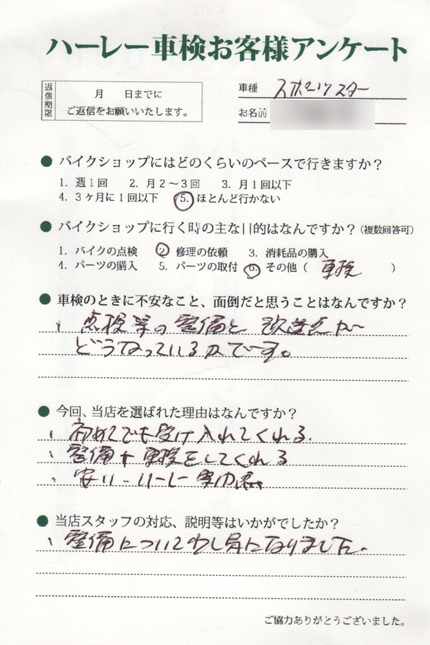 ハーレー車検お客様アンケート
返信期限
月　日までに
ご返信をお願いいたします。
車種 スポーツスター
お名前
● バイクショップにはどのくらいのペースで行きますか？
1. 週1回　2. 月2～3回　3. 月1回以下
4. 3ヶ月に1回以下　5. ほとんど行かない
● バイクショップに行く時の主な目的はなんですか？（複数回答可）
1. バイクの点検　2. 修理の依頼　3. 消耗品の購入
4. パーツの購入　5. パーツの取付　6. その他（ 車検 ）
● 車検のときに不安なこと、面倒だと思うことはなんですか？
、点検等の整備と改造点が
どうなっているかです。
● 今回、当店を選ばれた理由はなんですか？
、初めてでも受け入れてくれる
、整備＋車検をしてくれる
、安い
● 当店スタッフの対応、説明等はいかがでしたか？
、整備について少し勉強になりました。
ご協力ありがとうございました。